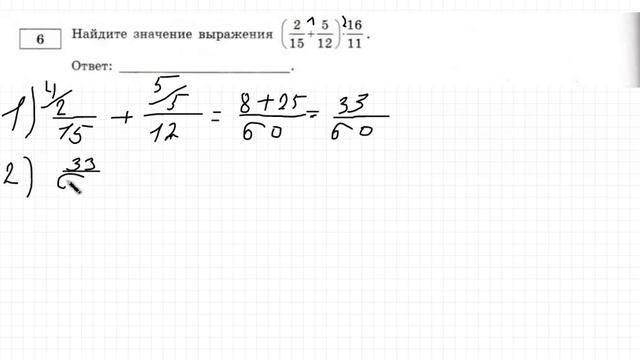 6 Найдите значение выражения (2/15 + 5/12) · 16/11.
Ответ: ____________.
1) 2/15 + 5/12 = 8+25/60 = 33/60
2) 33